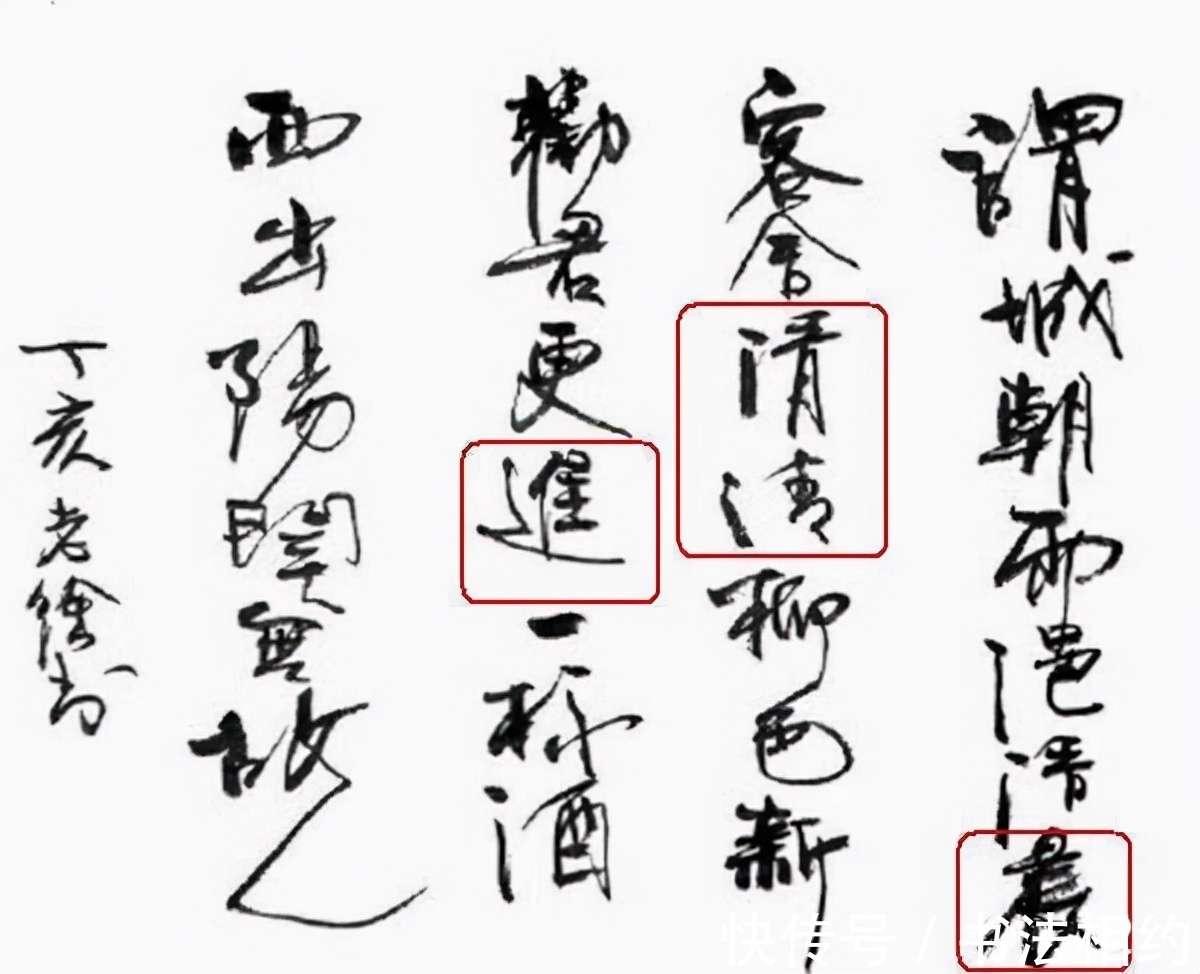 謂城朝雨浥清
客舍清清柳色新
勸君更進一杯酒
西出陽関無故人
丁亥老徐书
快传号 / 书法相约